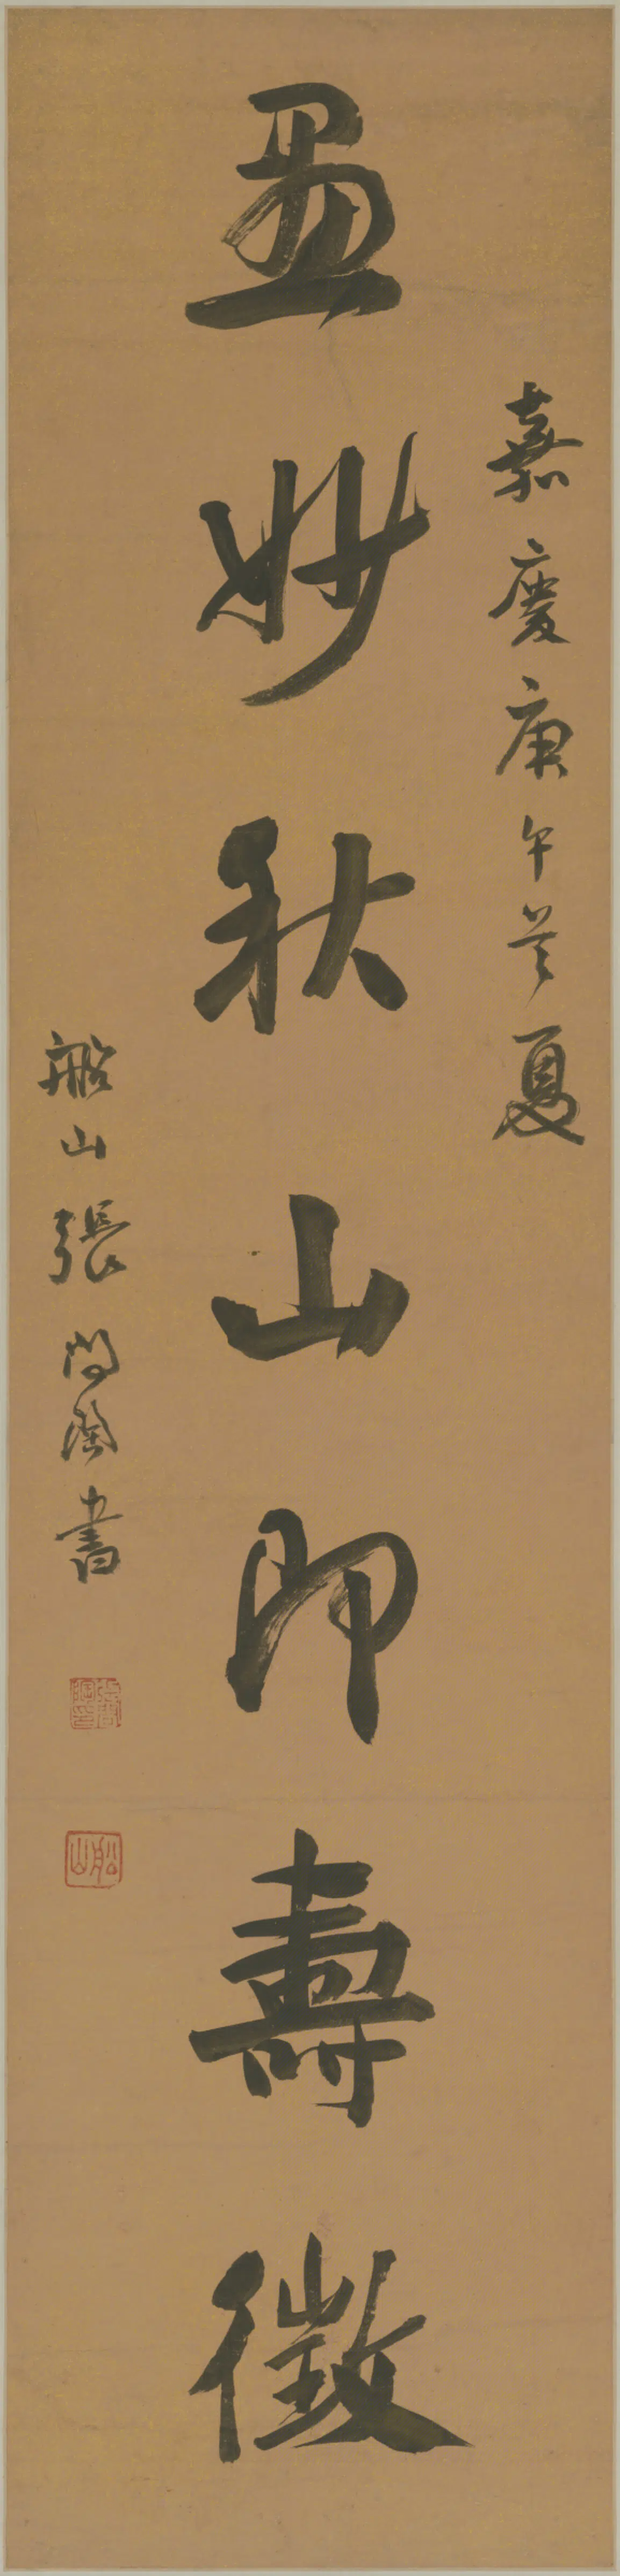 嘉慶庚午首夏
畫妙秋山即壽徵
船山張問陶書
張問陶印
船山